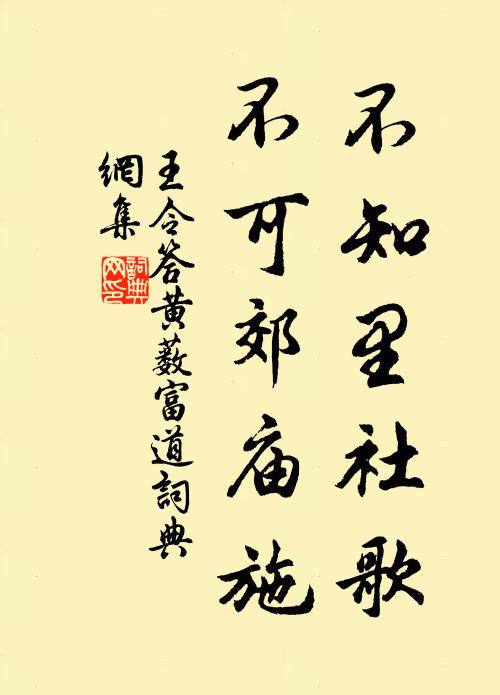 不知里社歌
不可郊庙施
王令答黄藪富道詞典
網集
詞典網印